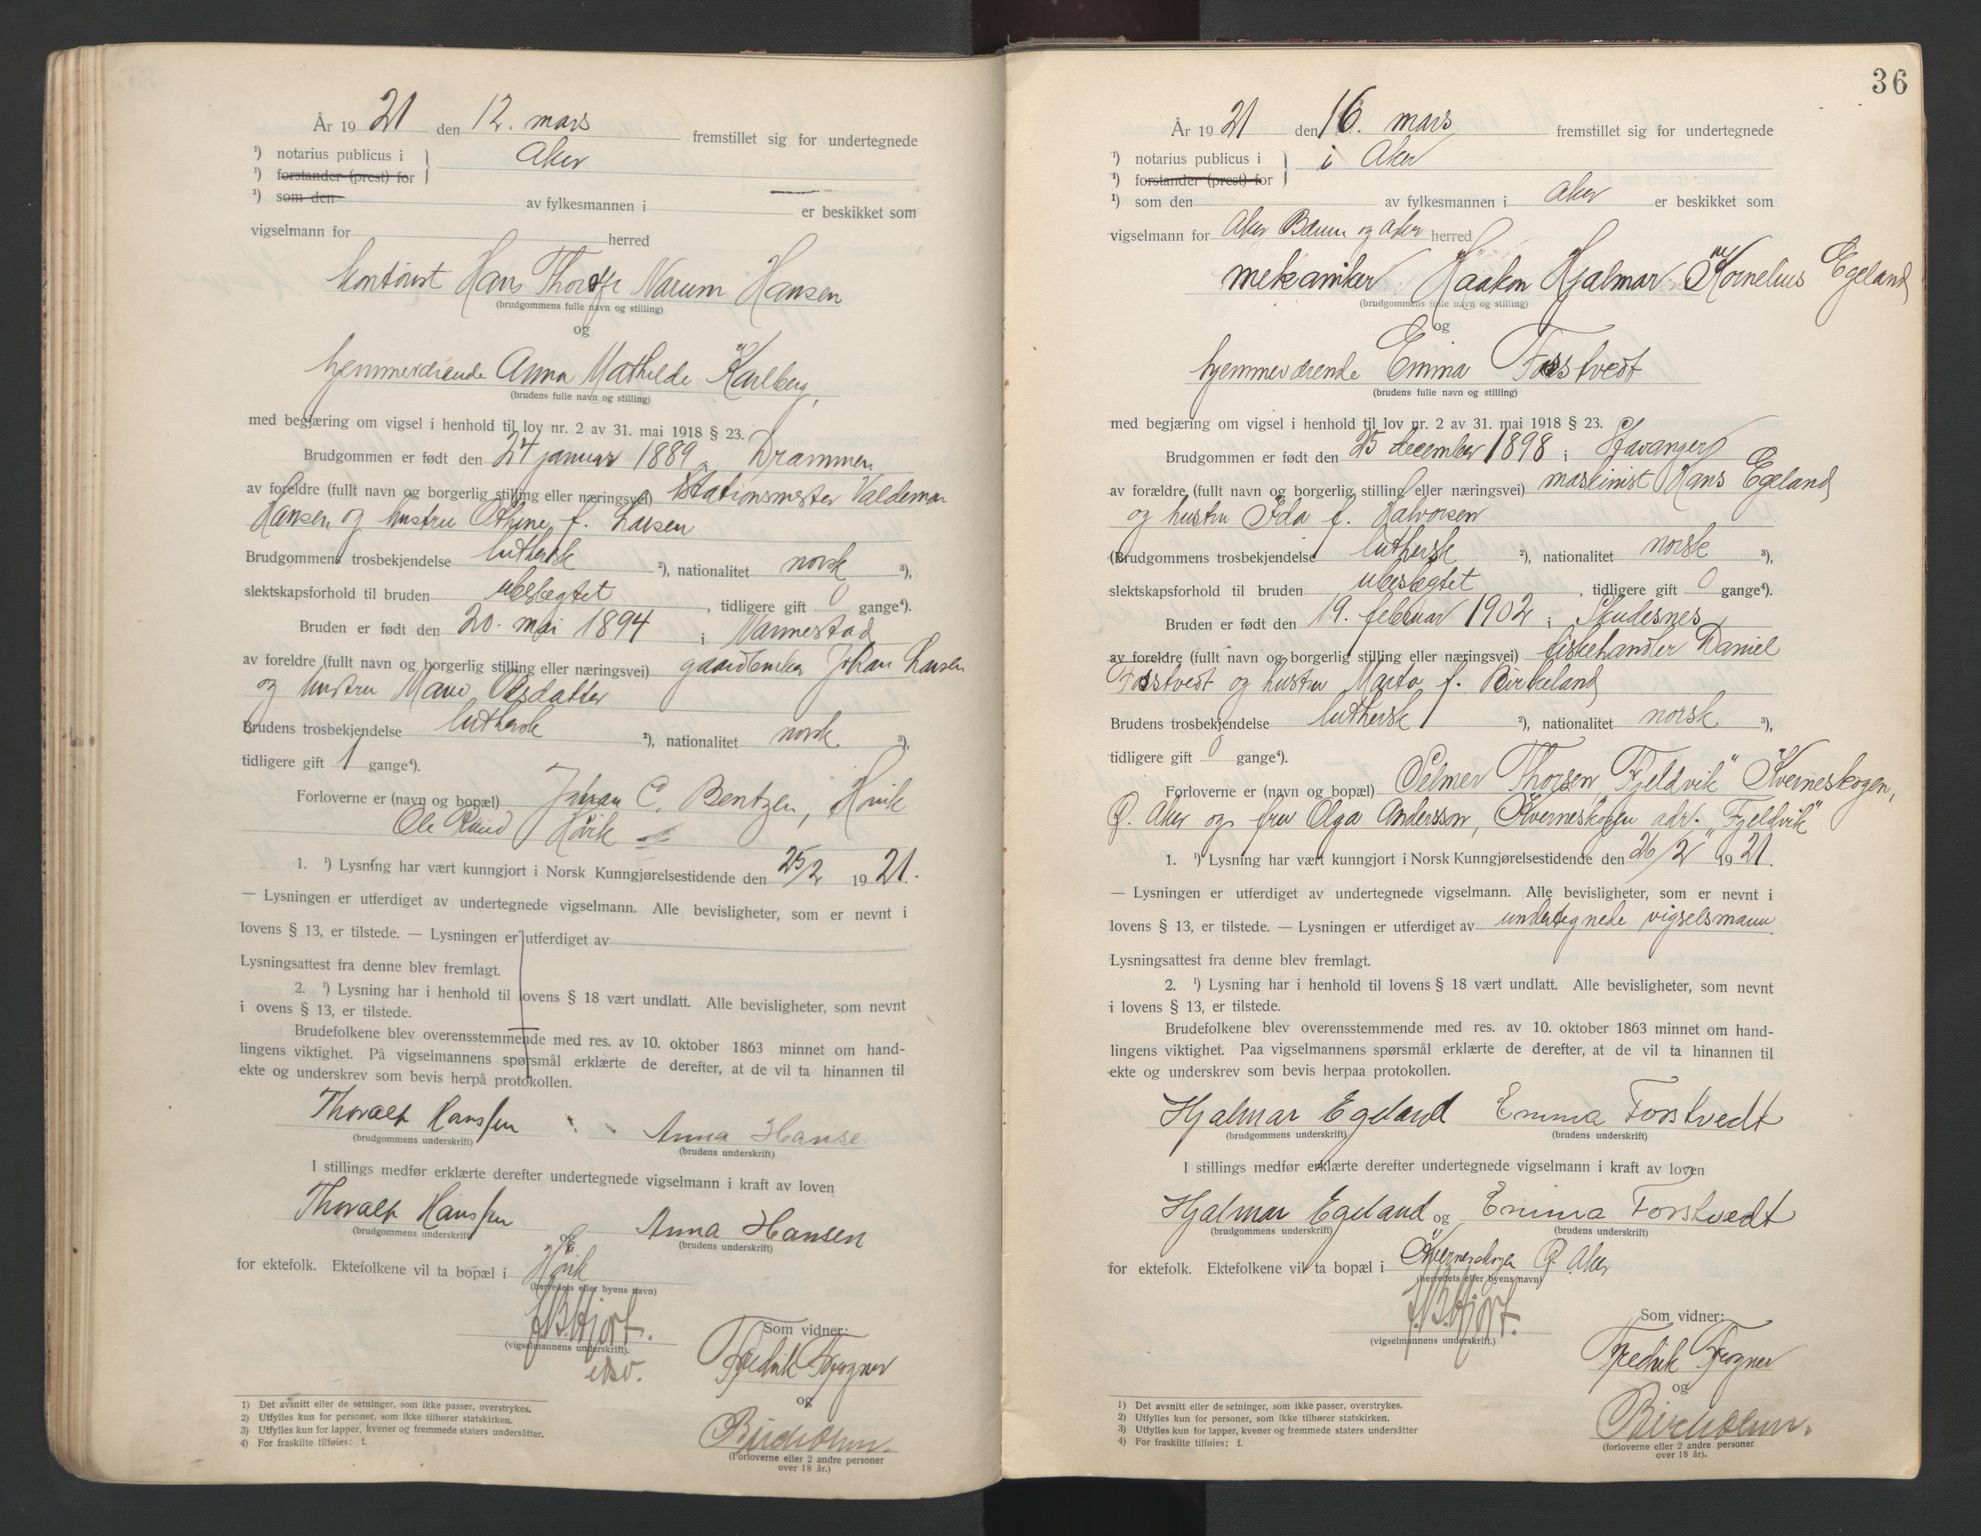 År 1921 den 12. mars fremstillet sig for undertegnede
¹) notarius publicus i Aker
¹) forstander (prest) for
¹) som den av fylkesmannen i er beskikket som
vigselmann for herred
kontorist Hans Thoralf Narum Hansen
(brudgommens fulle navn og stilling)
og
hjemmeværende Anna Mathilde Karlberg,
(brudens fulle navn og stilling)
med begjæring om vigsel i henhold til lov nr. 2 av 31. mai 1918 § 23.
Brudgommen er født den 24 januar 1889 Drammen
av foreldre (fullt navn og borgerlig stilling eller næringsvei) stationsmester Valdemar
Hansen og hustru Othine f. Larsen
Brudgommens trosbekjendelse luthersk ²), nationalitet norsk ³),
slektskapsforhold til bruden ubeslegtet, tidligere gift 0 gange⁴).
Bruden er født den 20. mai 1894 i Vannestad
av foreldre (fullt navn og borgerlig stilling eller næringsvei) gaardbruker Johan Larsen
og hustru Marie Olsdatter
Brudens trosbekjendelse luthersk ²), nationalitet norsk ³),
tidligere gift 1 gange⁴).
Forloverne er (navn og bopæl) Johan C. Bentzen, Høvik
Ole Ruud Høvik
1. ¹) Lysning har vært kunngjort i Norsk Kunngjørelsestidende den 25/2 1921.
— Lysningen er utferdiget av undertegnede vigselmann. Alle bevisligheter, som er nevnt i
lovens § 13, er tilstede. — Lysningen er utferdiget av
Lysningsattest fra denne blev fremlagt.
2. ¹) Lysning har i henhold til lovens § 18 vært undlatt. Alle bevisligheter, som nevnt
i ovens § 13, er tilstede.
Brudefolkene blev overensstemmende med res. av 10. oktober 1863 minnet om hand-
lingens viktighet. På vigselmannens spørsmål erklærte de derefter, at de vil ta hinannen til
ekte og underskrev som bevis herpå protokollen.
Thoralf Hanssen Anna Hanse
(brudgommens underskrift) (brudens underskrift)
I stillings medfør erklærte derefter undertegnede vigselmann i kraft av loven
Thoralf Hanssen og Anna Hansen
(brudgommens underskrift) (brudens underskrift)
for ektefolk. Ektefolkene vil ta bopæl i Høvik
(herredets eller byens navn)
J.B. Hjort.
(vigselmannens underskrift).
Som vidner:
Fredrik Frogner
og
(Forloverne eller 2 andre personer
over 18 år.)
1) Det avsnitt eller de setninger, som ikke passer, overstrykes.
2) Utfylles kun for personer, som ikke tilhører statskirken.
3) Utfylles kun for lapper, kvener og fremmede staters undersåtter.
4) For fraskilte tilføies: f.
36
År 1921 den 16. mars fremstillet sig for undertegnede
¹) notarius publicus i i Aker
¹) forstander (prest) for
¹) som den av fylkesmannen i Aker er beskikket som
vigselmann for Aker Bærum og Asker herred
mekaniker Haakon Hjalmar Kornelius Egeland
(brudgommens fulle navn og stilling)
og
hjemmeværende Emma Forstvedt
(brudens fulle navn og stilling)
med begjæring om vigsel i henhold til lov nr. 2 av 31. mai 1918 § 23.
Brudgommen er født den 25 december 1898 i Stavanger
av forældre (fullt navn og borgerlig stilling eller næringsvei) maskinist Hans Egeland
og hustru Ida f. Halvorsen
(Brudgommens trosbekjendelse luthersk ²), nationalitet norsk ³),
slektskapsforhold til bruden ubeslegtet, tidligere gift 0 gange⁴).
Bruden er født den 19. februar 1902 i Skudesnes
av foreldre (fullt navn og borgerlig stilling eller næringsvei) fiskehandler Daniel
Forstvedt og hustru Marta f. Birkeland
Brudens trosbekjendelse luthersk ²), nationalitet norsk ³),
tidligere gift 0 gange⁴).
Forloverne er (navn og bopæl) Selmer Thorsen, "Fjeldvik" Kverneskogen,
Ø. Aker og fru Olga Andersson, Kverneskogen adr. "Fjeldvik"
1. ¹) Lysning har vært kunngjort i Norsk Kunngjørelsestidende den 26/2 1921.
— Lysningen er utferdiget av undertegnede vigselmann. Alle bevisligheter, som er nevnt i
lovens § 13, er tilstede. — Lysningen er utferdiget av undertegnede vigselsmann.
Lysningsattest fra denne blev fremlagt.
2. ¹) Lysning har i henhold til lovens § 18 vært undlatt. Alle bevisligheter, som nevnt
i lovens § 13, er tilstede.
Brudefolkene blev overensstemmende med res. av 10. oktober 1863 minnet om hand-
lingens viktighet. Paa vigselmannens spørsmål erklærte de derefter, at de vil ta hinannen til
ekte og underskrev som bevis herpaa protokollen.
Hjalmar Egeland Emma Forstvedt
(brudgommens underskrift) (brudens underskrift)
I stillings medfør erklærte derefter undertegnede vigselmann i kraft av loven
Hjalmar Egeland og Emma Forstvedt
(brudgommens underskrift) (brudens underskrift)
for ektefolk. Ektefolkene vil ta bopæl i Kverneskogen Ø. Aker
(herredets eller byens navn)
J.B. Hjort.
(vigselmannens underskrift.)
Som vidner:
Fredrik Frogner
og
(forloverne eller 2 andre personer
over 18 år).
1) Det avsnitt eller de setninger, som ikke passer, overstrykes.
2) Utfylles kun for personer, som ikke tilhører statskirken.
3) Utfylles kun for lapper, kvener og fremmede staters undersåtter
4) For fraskilte tilføies: f.